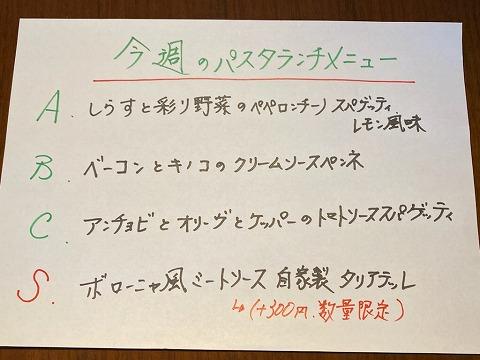 今週のパスタランチメニュー
A. しらすと彩り野菜のペペロンチーノ スパゲッティ
レモン風味
B. ベーコンとキノコのクリームソースペンネ
C. アンチョビとオリーヴとケッパーのトマトソーススパゲッティ
S. ボローニャ風ミートソース 自家製 タリアテッレ
↳(+300円.数量限定)